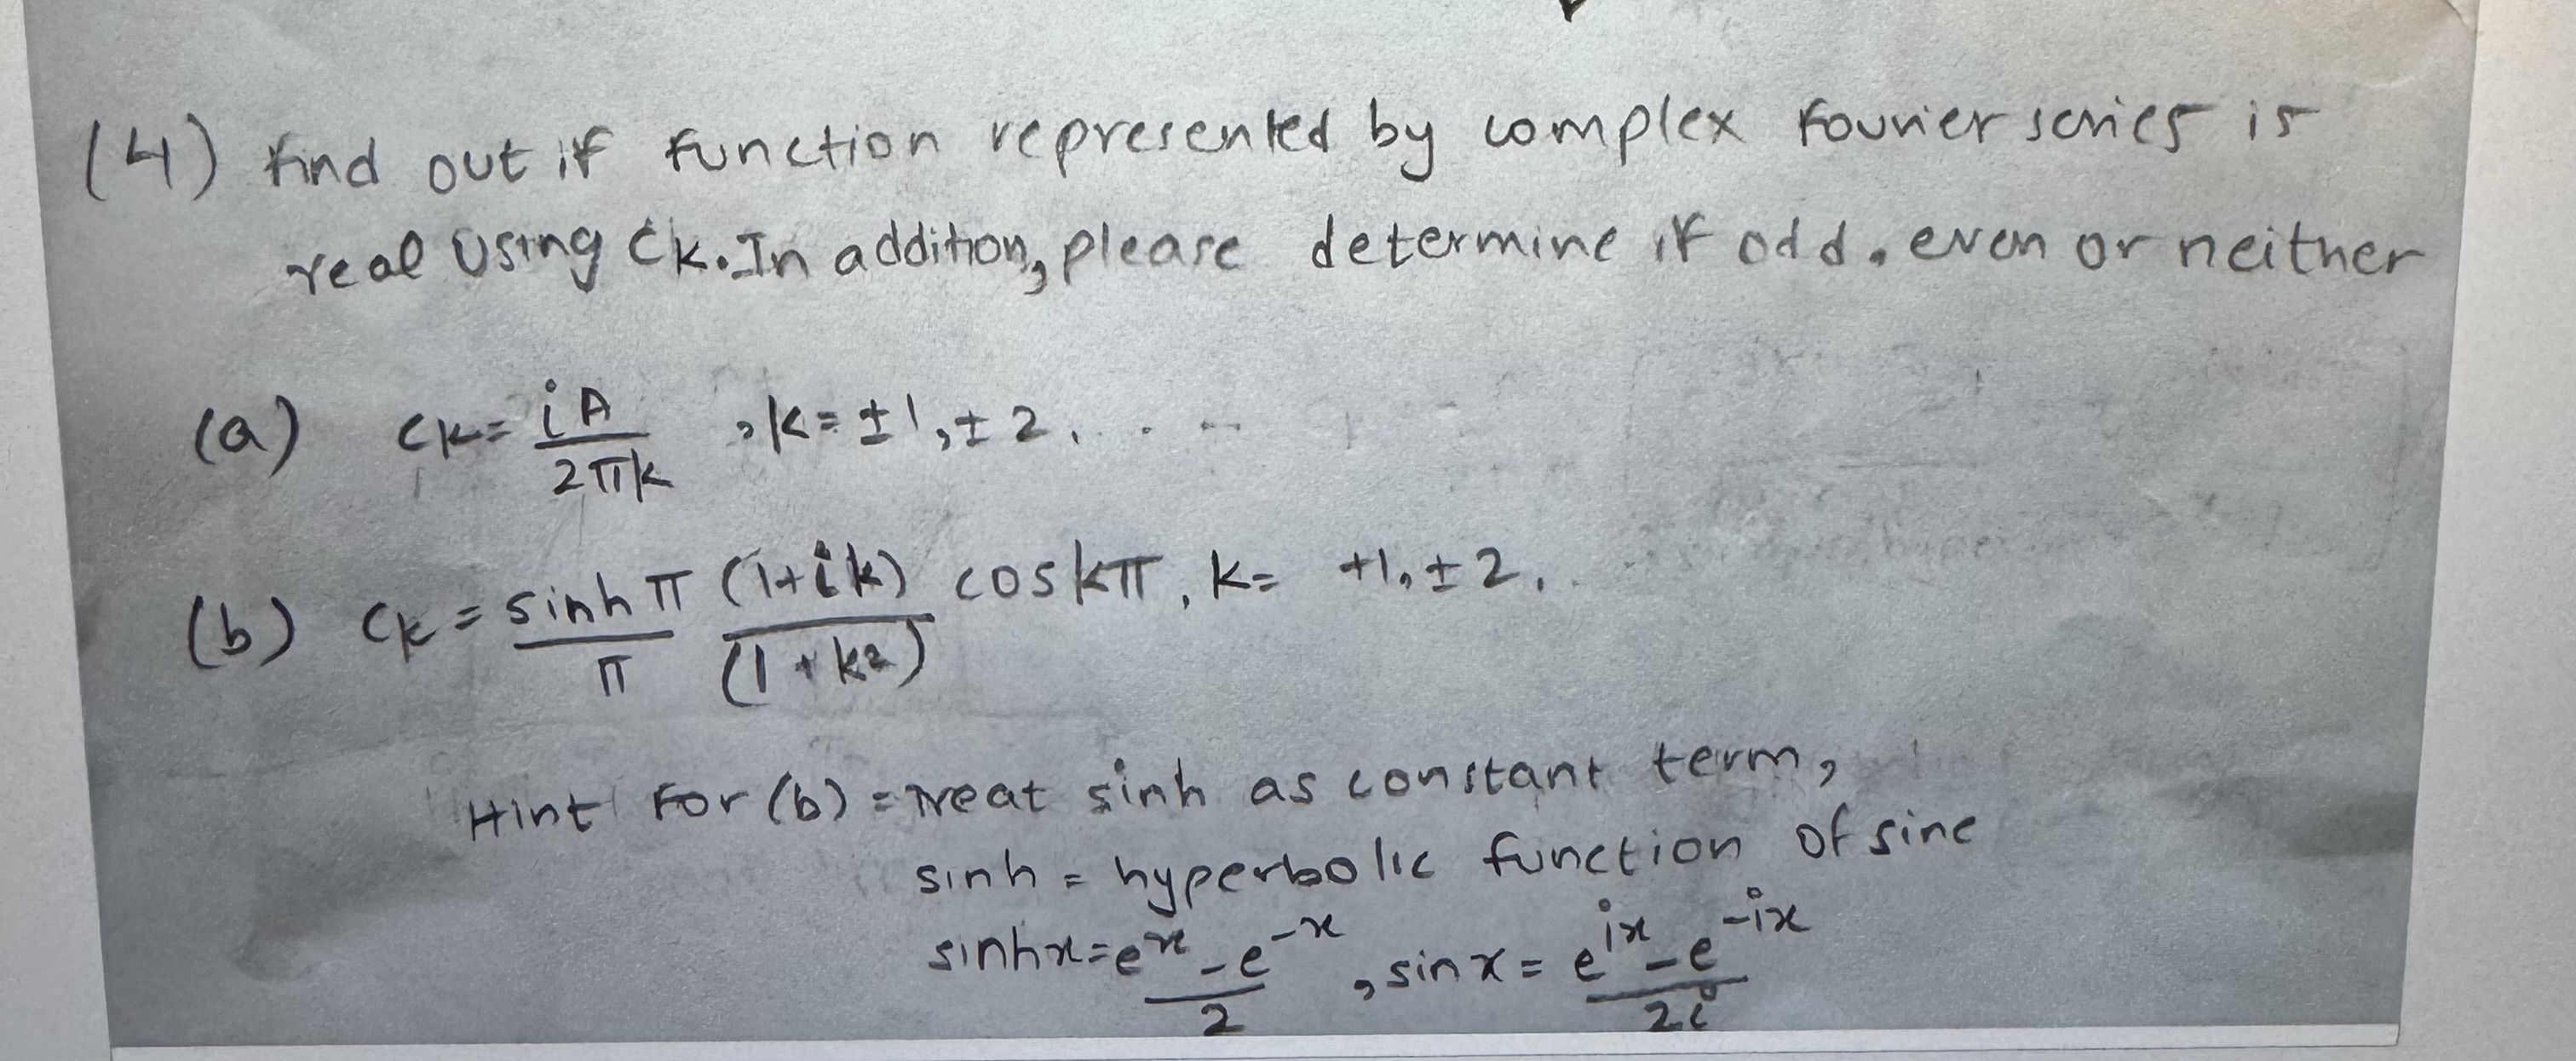 (4) find out if function represented by complex Fourier series is
real Using Ck. In addition, please determine if odd, even or neither
(a) Ck = iA / 2πk , k = ±1, ±2, . . .
(b) Ck = sinh π / π (1+ik) / (1+k²) cos kπ, k = +1, ±2, .
Hint For (b) = Treat sinh as constant term,
sinh = hyperbolic function of sine
sinhx = e^x - e^-x / 2 , sin x = e^ix - e^-ix / 2i